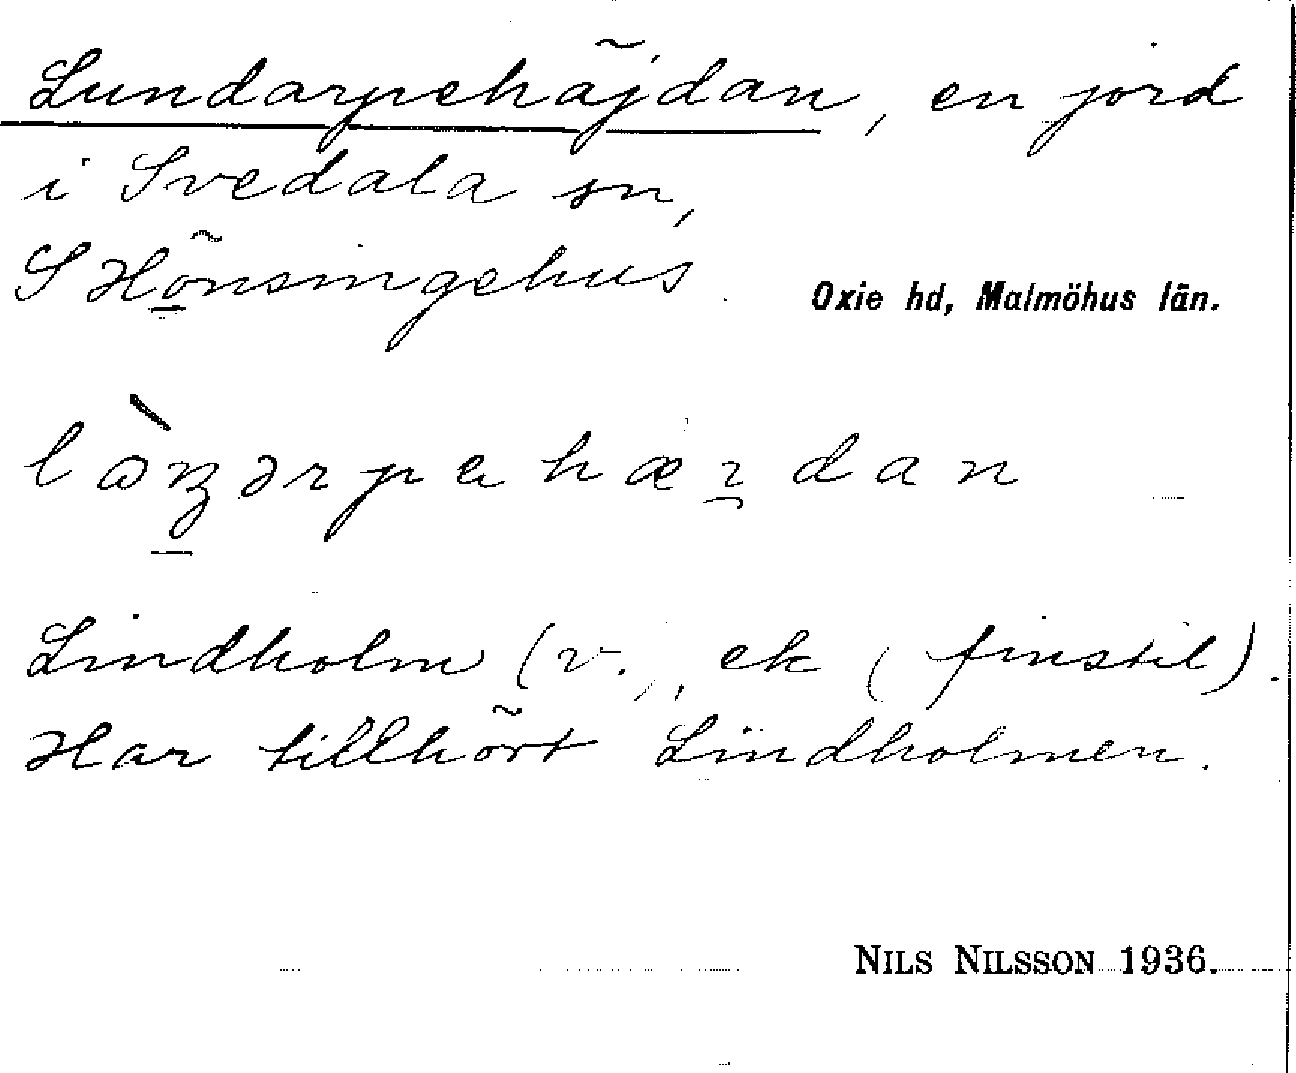 Lundarpehäjdan, en jord
i Svedala sn,
S Hönsingehus. Oxie hd, Malmöhus län.
Lindholm (v.), ek (finstil).
Har tillhört Lindholmen.
NILS NILSSON 1936.